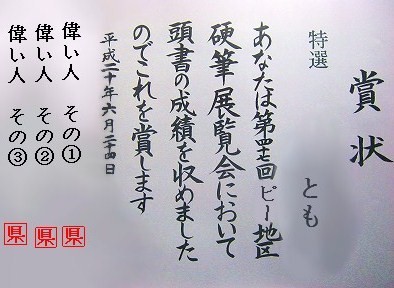 賞状
特選
とも
あなたは第四七回ピー地区
硬筆展覧会において
頭書の成績を収めました
のでこれを賞します
平成二十年六月二十四日
偉い人 その① 県
偉い人 その② 県
偉い人 その③ 県